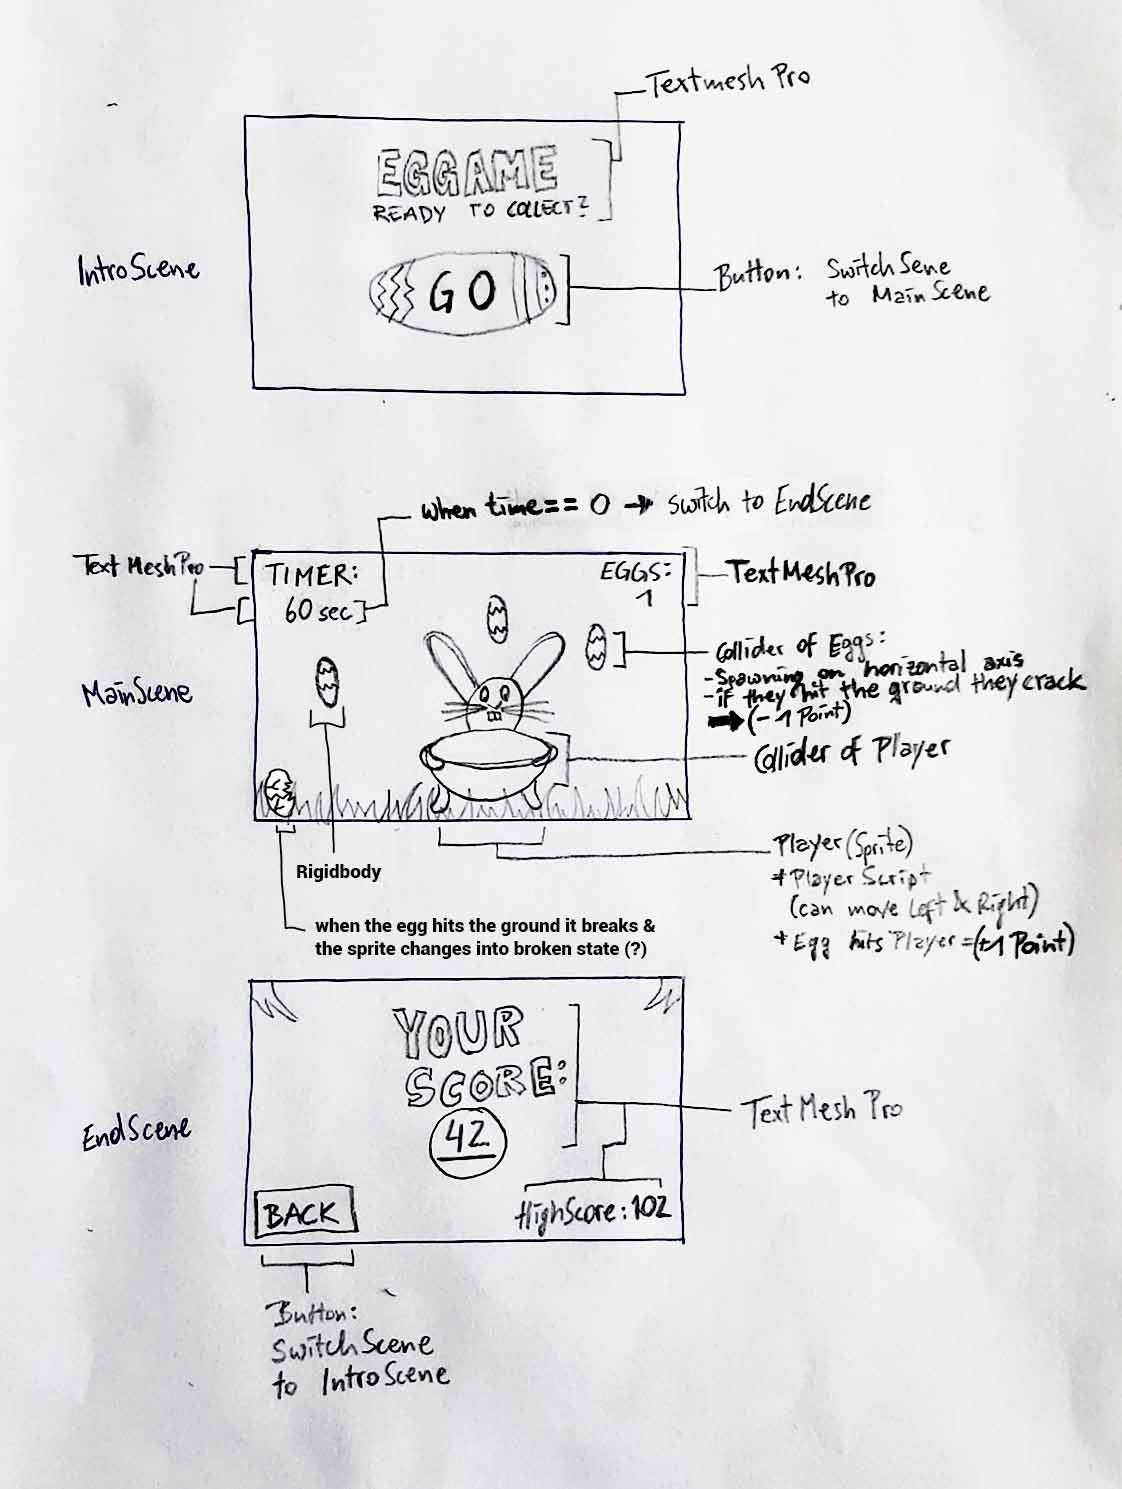 Textmesh Pro
EGGAME
READY TO COLLECT?
IntroScene
GO
Button: SwitchSene
to MainScene
when time == 0 → switch to EndScene
Text MeshPro
TIMER:
60 sec
EGGS:
1
TextMeshPro
Collider of Eggs:
- Spawning on horizontal axis
- if they hit the ground they crack
➡ (- 1 Point)
MainScene
Collider of Player
Rigidbody
Player (Sprite)
+ Player Script
(can move Left & Right)
+ Egg hits Player = (+1 Point)
when the egg hits the ground it breaks &
the sprite changes into broken state (?)
YOUR
SCORE:
42
EndScene
Text Mesh Pro
BACK
HighScore: 102
Button:
SwitchScene
to IntroScene